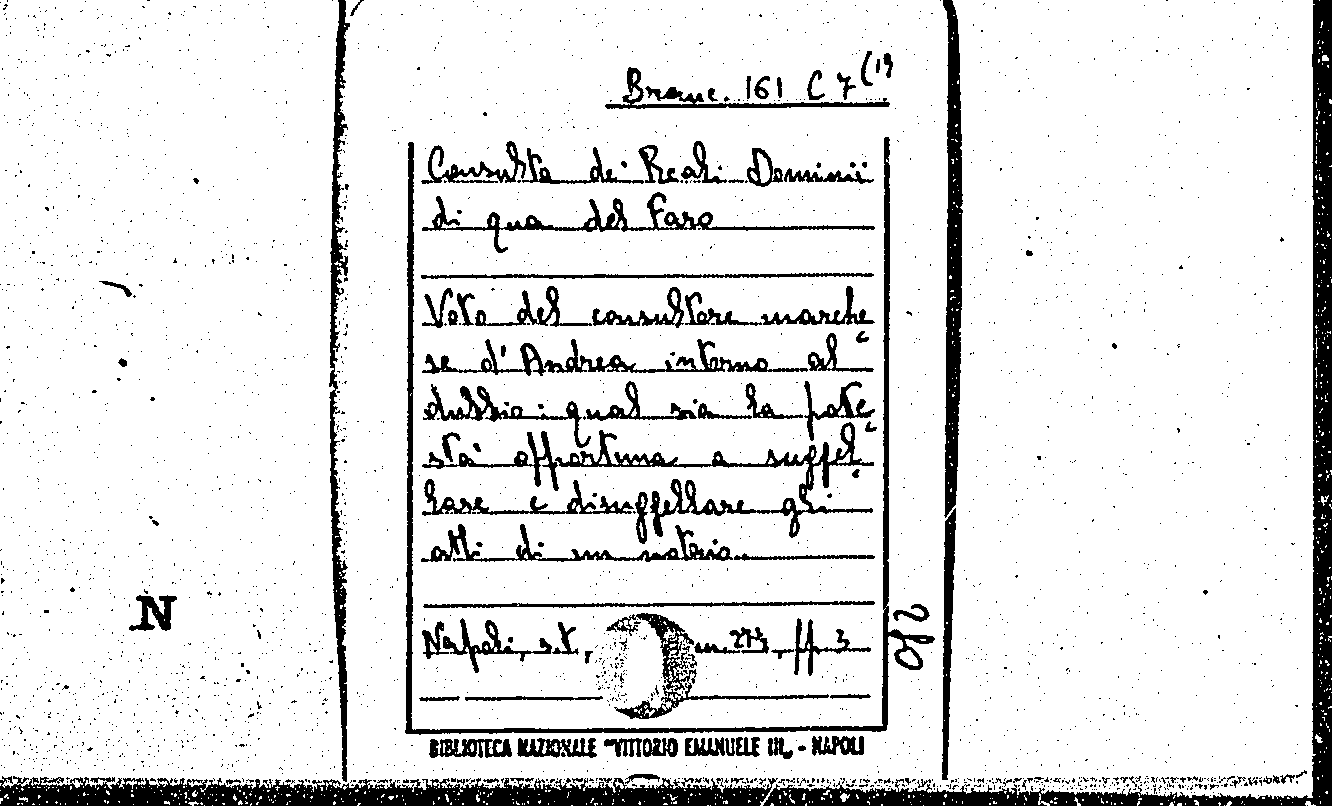 Branc. 161 C 7 (19
Consulta de' Reali Dominii
di qua del Faro
Voto del consultore marche
se d'Andrea intorno al
dubbio: qual sia la pote
stà opportuna a suggel
lare e disuggellare gli
atti di un notaio.
Napoli, s.t., in. 27 , pp. 3
BIBLIOTECA NAZIONALE "VITTORIO EMANUELE III„ - NAPOLI
N